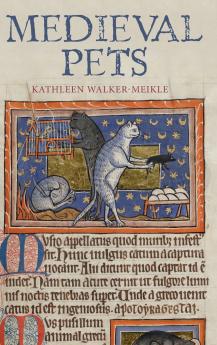 MEDIEVAL
PETS
KATHLEEN WALKER-MEIKLE
Musio appellatus quod murib; infest
sit. Hunc uulgus catum a captura
uocant. Alii dicunt quod captat id e
uidet. Nam tam acute cernit ut fulgore lumi
nis noctis tenebras superet. Unde a greco uenit
catus id est ingeniosus.
Mus pusillum
animal grecu